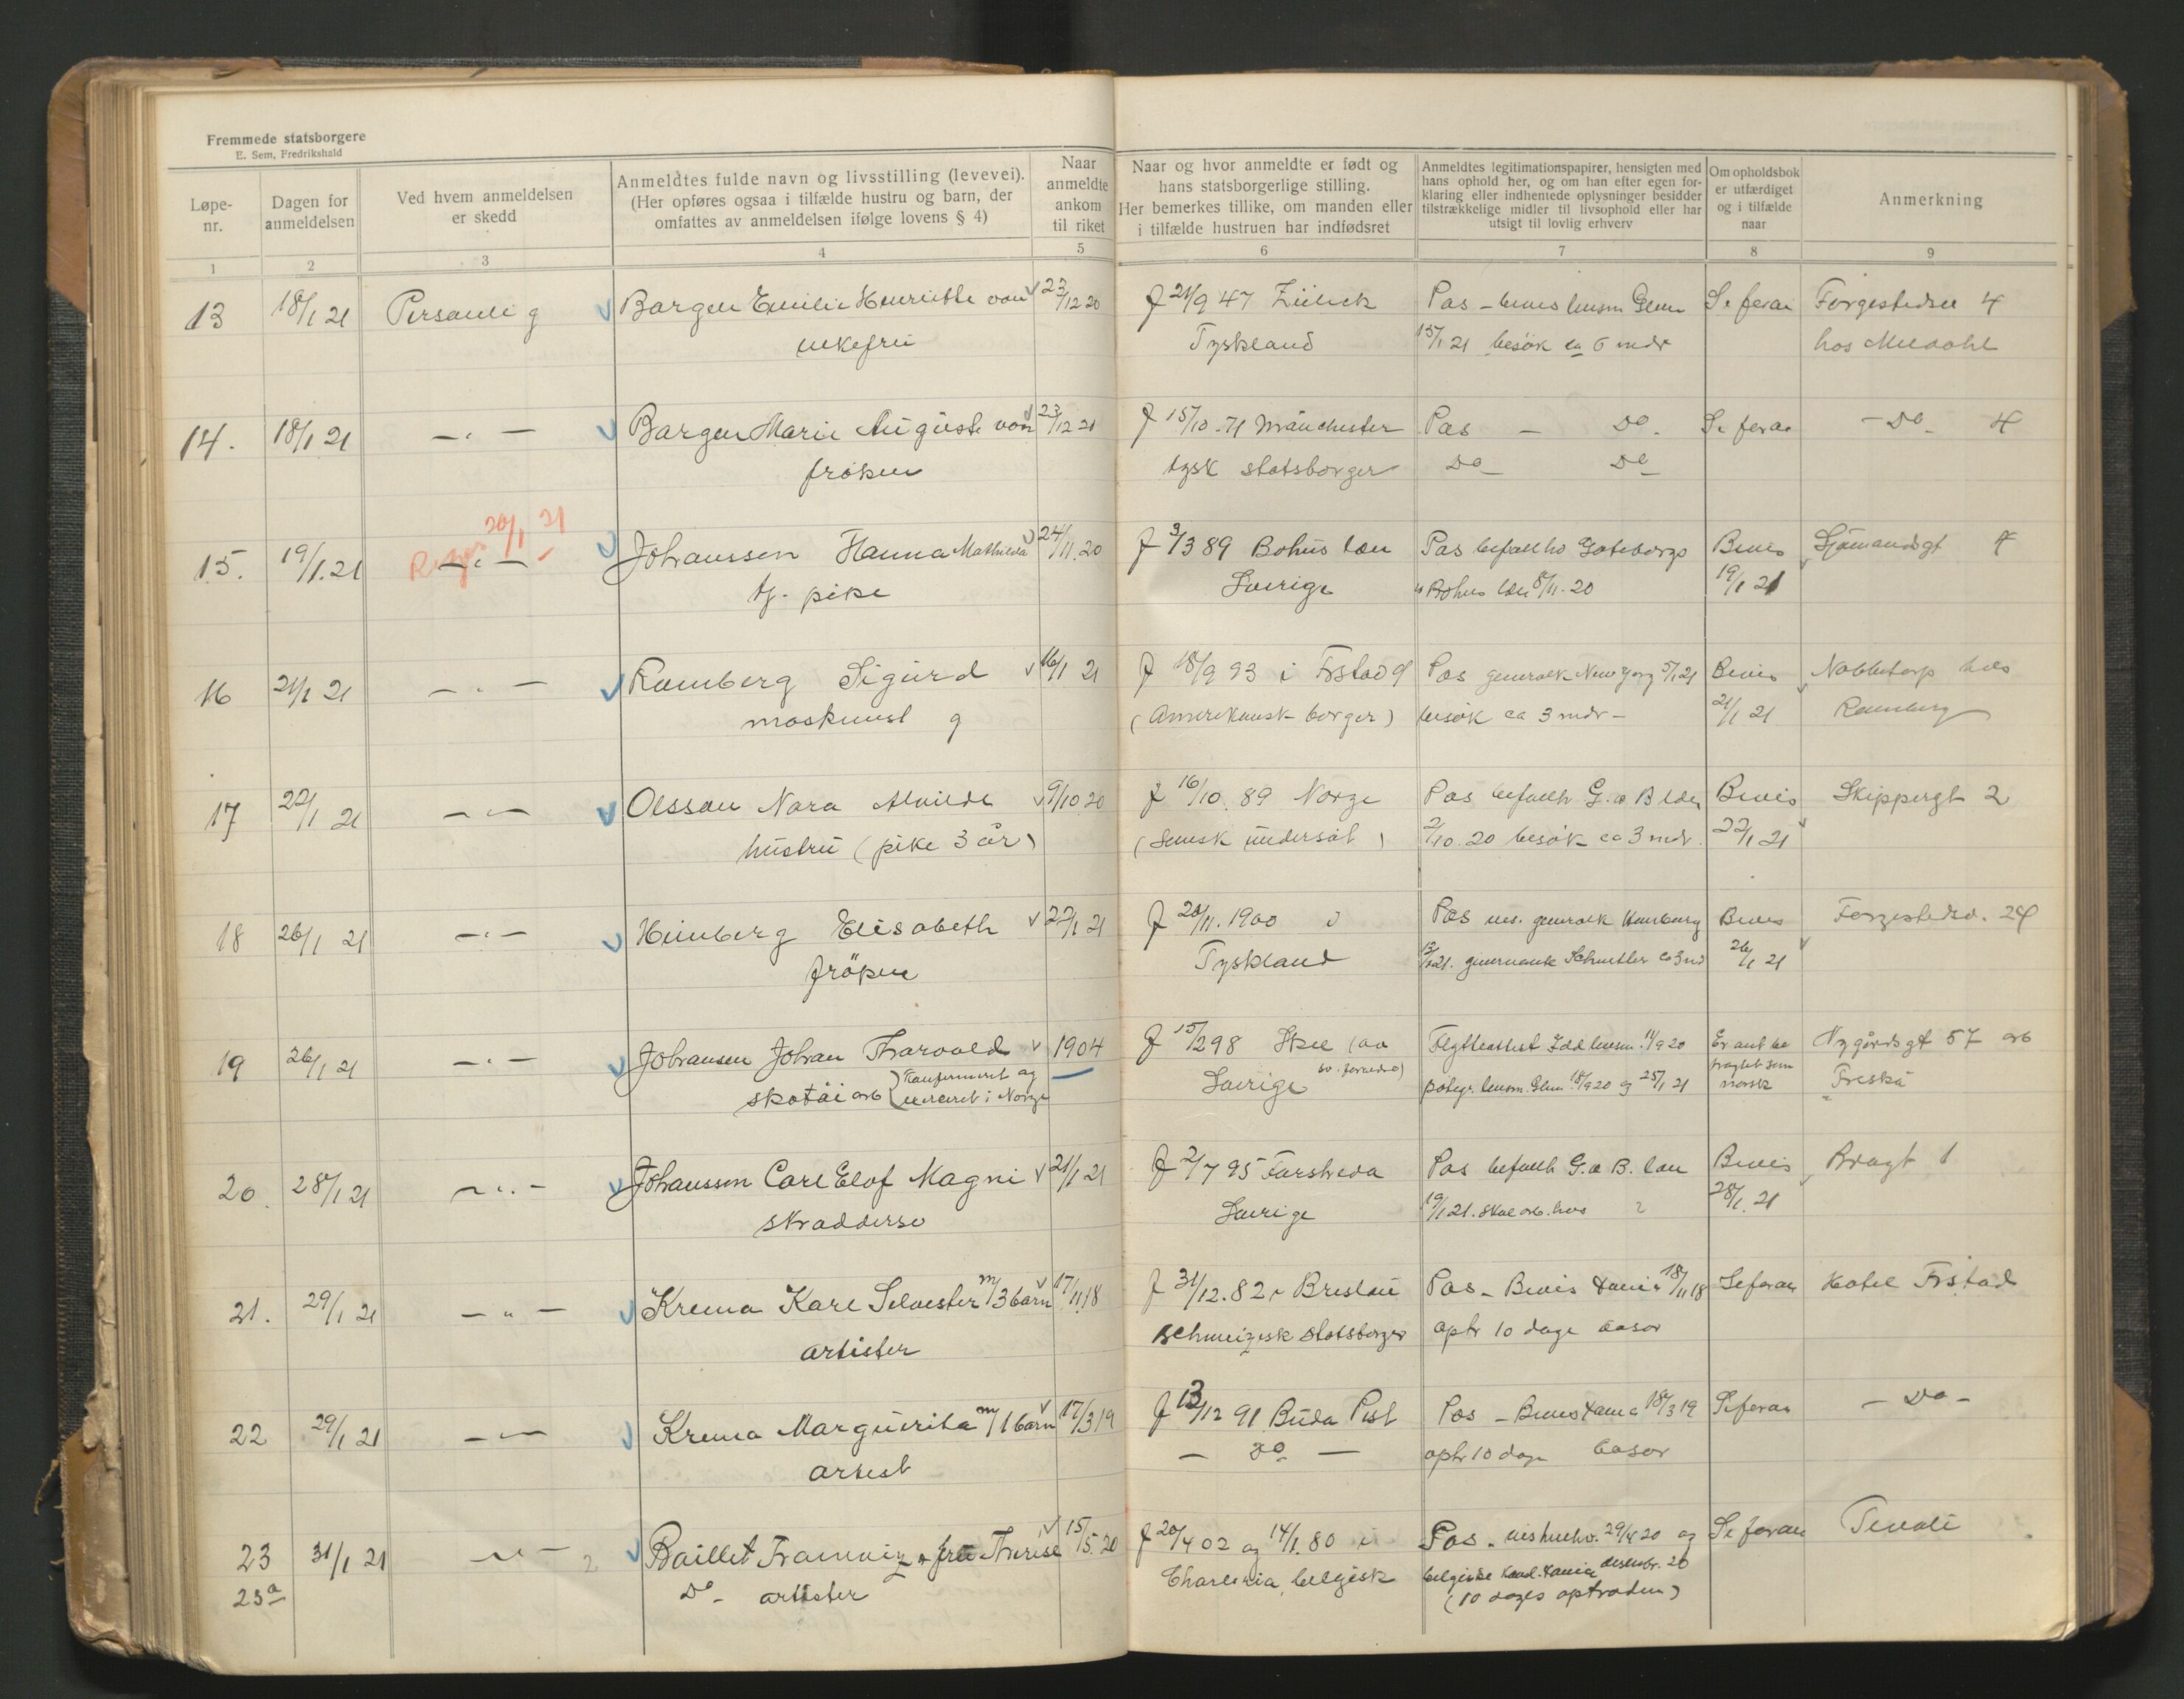 Fremmede statsborgere
E. Sem, Fredrikshald
Løpe-
nr.
Dagen for
anmeldelsen
Ved hvem anmeldelsen
er skedd
Anmeldtes fulde navn og livsstilling (levevei).
(Her opføres ogsaa i tilfælde hustru og barn, der
omfattes av anmeldelsen ifølge lovens § 4)
Naar
anmeldte
ankom
til riket
Naar og hvor anmeldte er født og
hans statsborgerlige stilling.
Her bemerkes tillike, om manden eller
i tilfælde hustruen har indfødsret
Anmeldtes legitimationspapirer, hensigten med
hans ophold her, og om han efter egen for-
klaring eller indhentede oplysninger besidder
tilstrækkelige midler til livsophold eller har
utsigt til lovlig erhverv
Om opholdsbok
er utfærdiget
og i tilfælde
naar
Anmerkning
1 2 3 4 5 6 7 8 9
13 18/1 21 Personlig Bargen Emilie Henriette von 23/12 20 f 21/9 47 Pas - bevis lensm Glem Se foran Forgestedsv 4
enkefru Tyskland 15/1 21 besøk ca 6 mdr hos
14. 18/1 21 - " - Bargen Marie Auguste von 23/12 21 f 15/10.71 Manchester Pas - Do - Se foran - Do - 4
frøken tysk statsborger Do - Do
20/1 21
15. 19/1.21 - " - Johanssen Hanna Mathilda 24/11.20 f 3/3 89 Bohus læn Pas befallh Göteborgs Bevis Sjømandsgt 7
tj. pike Sverige o Bohus læn 8/11-20 19/1 21
16 21/1 21 - " - Ramberg Sigurd 16/1 21 f 18/9 93 i Frstad Pas generalk New York 5/1 21 Bevis Nabbetorp hos
maskinist (Amerikansk borger) besøk ca 3 mdr - 21/1 21 Ramberg
17 22/1 21 - " - Olsson Nora Alvilde 9/10 20 f 16/10.89 Norge Pas befallh G. o B læn Bevis Skippergt 2
hustru (pike 3 år) (svensk undersåt) 2/10.20 besøk ca 3 mdr. 22/1 21
18 26/1 21 - " - Heimberg Elisabeth 22/1 21 f 20/11.1900 i Pas generalk Hamburg Bevis Forgestedsv. 24
frøken Tyskland 26/1 21
19 26/1 21 - " - Johansen Johan Tharvald 1904 f 15/2 98 Skee Flytteattest Idd lensm. 11/9 20 Er anf be Nygårdsgt 57 arb
skotøiarb Konfirmeret og Sverige lensm. Glem 18/9 20 og 25/1 21 norsk
i Norge
20. 28/1 21 - " - Johansson Carl Elof Magni 21/1 21 f 2/7 95 Forsheda Pas befallh G. o B. læn Bevis Brogt 1
skräddersv Sverige 19/1 21. skal arb. hos 28/1.21
21. 29/1 21 - " - Krema Karl Selvester m/3 barn 17/11 18 f 31/12.82 i Breslau Pas - Bevis Kania 18/11 18 Se foran Hotel Frstad
artister schweizisk statsborger optr 10 dage basar
22 29/1 21 - " - Krema Marguerita m/1 barn 17/3 19 f 13/12 91 Buda Pest Pas - Bevis Kania 18/3 19 Se foran - Do -
artist - Do - optr 10 dage basar
23 31/1 21 - " - Baillet & fru Therese 15/5.20 f 20/4 02 og 14/1.80 i Pas. 29/4 20 og Se foran Tivoli
23a Do - artister belgisk belgiske Kania desembr. 20
(10 dages optræden)